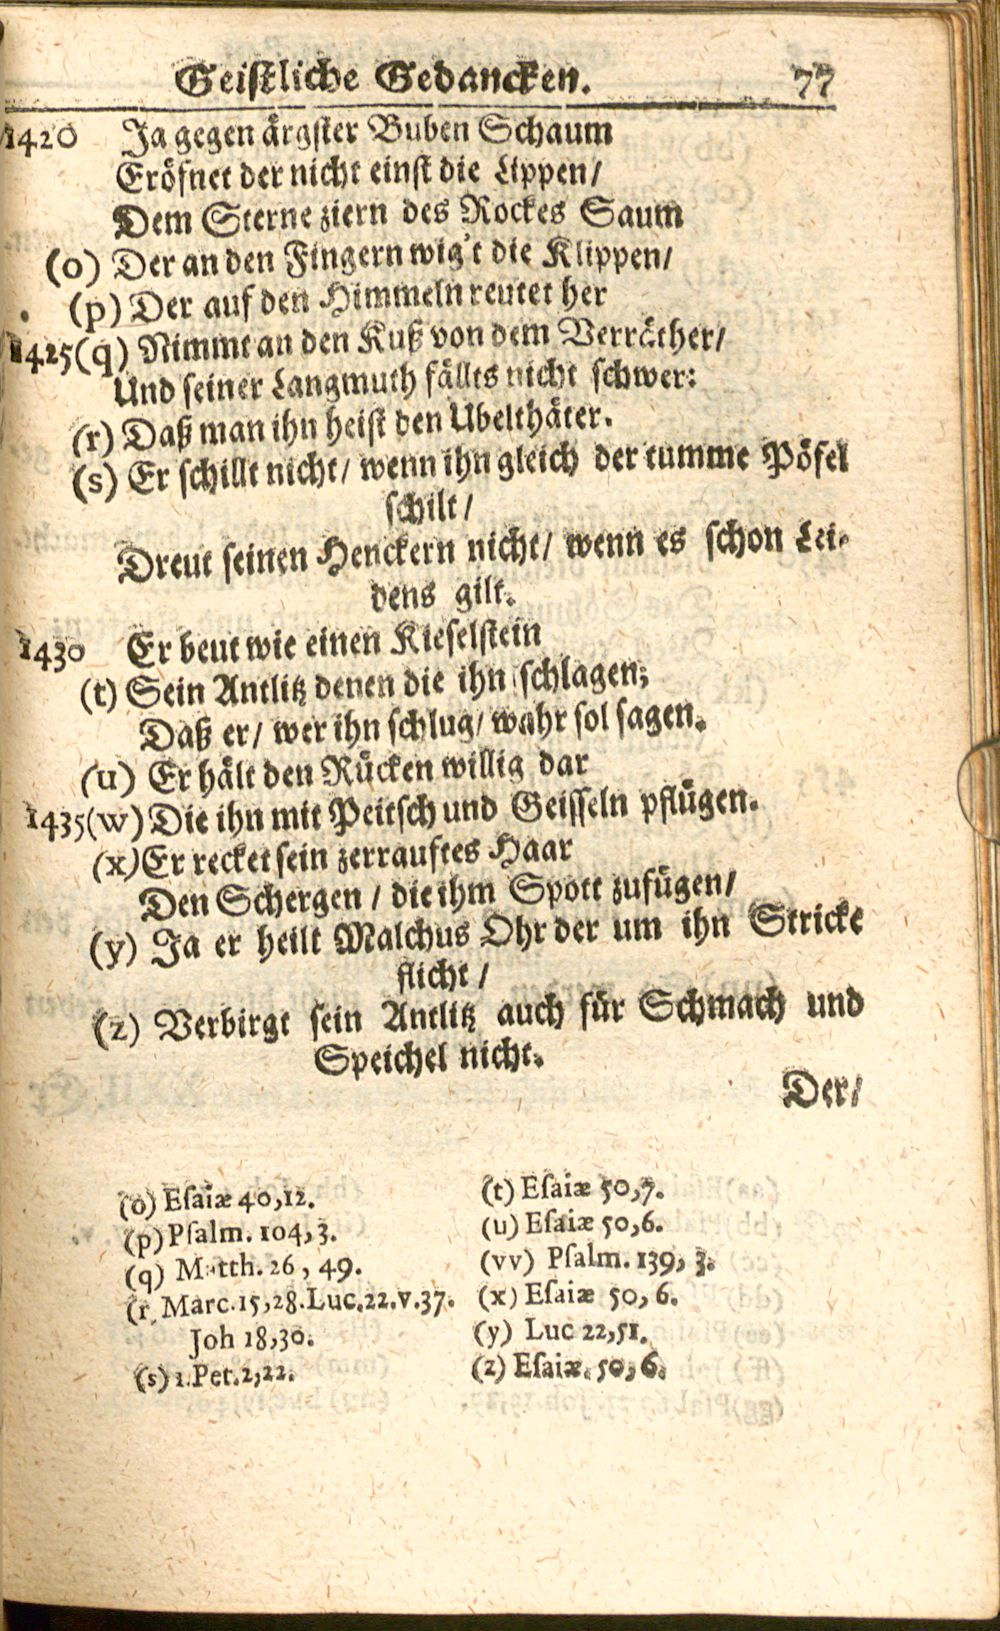 Geistliche Gedancken. 77
1420 Ja gegen ärgster Buben Schaum
Eröfnet der nicht einst die Lippen/
Dem Sterne ziern des Rockes Saum
(o) Der an den Fingern wig't die Klippen/
(p) Der auf den Himmeln reutet her
1425 (q) Nimmt an den Kuß von dem Verräther/
Und seiner Langmuth fällts nicht schwer:
(r) Daß man ihn heist den Ubelthäter.
(s) Er schillt nicht/ wenn ihn gleich der tumme Pöfel
schilt/
Dreut seinen Henckern nicht/ wenn es schon Lei-
dens gilt.
1430 Er beut wie einen Kieselstein
(t) Sein Antlitz denen die ihn schlagen;
Daß er/ wer ihn schlug/ wahr sol sagen.
(u) Er hält den Rücken willig dar
1435 (w) Die ihn mit Peitsch und Geisseln pflügen.
(x) Er recket sein zerrauftes Haar
Den Schergen / die ihm Spott zufügen/
(y) Ja er heilt Malchus Ohr der um ihn Stricke
flicht/
(z) Verbirgt sein Antlitz auch für Schmach und
Speichel nicht.
Der/
(o) Esaiæ 40,12.
(p) Psalm. 104, 3.
(q) Matth. 26, 49.
(r) Marc. 15,28. Luc. 22. v. 37.
Joh 18,30.
(s) 1. Pet. 2,22.
(t) Esaiæ 50,7.
(u) Esaiæ 50,6.
(vv) Psalm. 139, 3.
(x) Esaiæ 50, 6.
(y) Luc 22,51.
(z) Esaiæ. 50, 6.